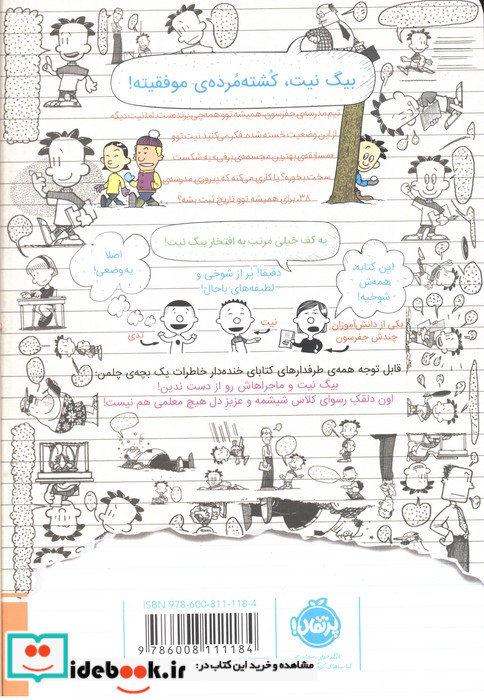 بیگ نیت، کُشته‌مُرده‌ی موفقیته!
تیم مدرسه‌ی جفرسون، همیشه توو همه‌چی برنده‌ست. اما نیت دیگه
از این وضعیت خسته شده. فکر می‌کنید نیت توو
مسابقه‌ی بهترین مجسمه‌ی برفی، یه شکست
سخت بخوره؟ یا کاری می‌کنه که پیروزی مدرسه‌ی
۳۸، برای همیشه توو تاریخ ثبت بشه؟
یه کف خیلی مرتب به افتخار بیگ نیت!
اصلاً
یه‌وضعی!
دقیقاً! پُر از شوخی و
لطیفه‌های باحال!
این کتابه،
همه‌ش
شوخیه!
تدی
نیت
یکی از دانش‌آموزان
چندش جفرسون
قابل توجه همه‌ی طرفدارهای کتابای خنده‌دار خاطرات یک بچه‌ی چلمن.
بیگ نیت و ماجراهاش رو از دست ندین!
اون دلقکِ رسوای کلاس شیشمه و عزیزِ دل هیچ معلمی هم نیست!
ISBN 978-600-811-118-4
9 786008 111184
پرتقال!
idebook.ir
مشاهده و خرید این کتاب در: